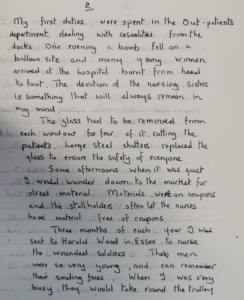 2
My first duties were spent in the Out-patients
department dealing with casualties from the
docks. One evening a bomb fell on a
balloon site and many young women
arrived at the hospital burnt from head
to foot. The devotion of the nursing sisters
is something that will always remain in
my mind.
The glass had to be removed from
each window for fear of it cutting the
patients. Large steel shutters replaced the
glass to ensure the safety of everyone.
Some afternoons when it was quiet
I would wander down to the market for
dress material. Materials were on coupons
and the stallholders often let the nurses
have material free of coupons.
Three months of each year I was
sent to Harold Wood in Essex to nurse
the wounded soldiers. These men
were so very young and can remember
their smiling faces. When I was very
busy they would take round the trolley